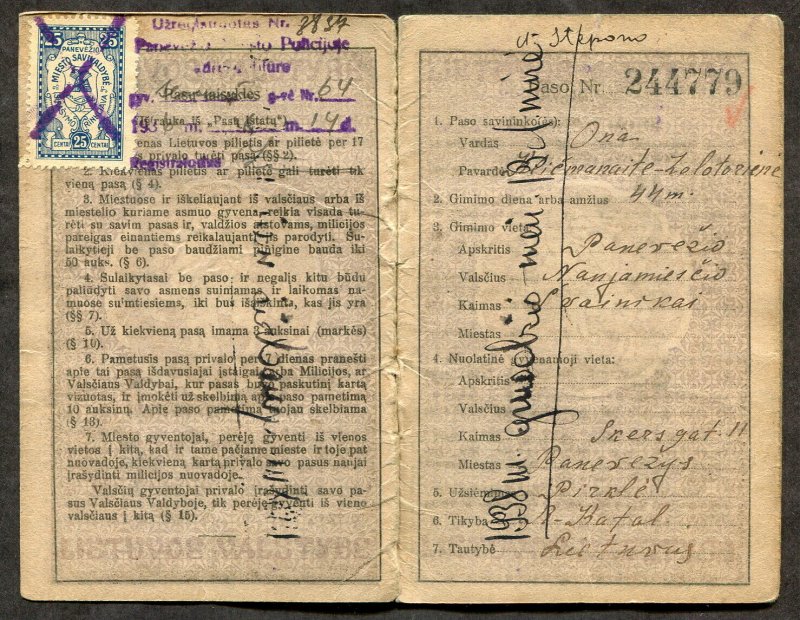 25 25
PANEVĖŽIO
MIESTO SAVIVALDYBĖ
CENTAI 25 CENTAI
Užregistruotas Nr. 8834
Panevėžio Miesto Policijoje
gyv. g-vė Nr. 64
Paso taisyklės
193 m. m. 14 d.
(Ištrauka iš „Pasų Įstatų")
enas Lietuvos pilietis ar pilietė per 17
privalo turėti pasą (§§ 2).
Registratorius
2. Kiekvienas pilietis ar pilietė gali turėti tik
vieną pasą (§ 4).
3. Miestuose ir iškeliaujant iš valsčiaus arba iš
miestelio kuriame asmuo gyvena, reikia visada tu-
rėti su savim pasas ir, valdžios atstovams, milicijos
pareigas einantiems reikalaujant, jis parodyti. Su-
laikytieji be paso baudžiami pinigine bauda iki
50 auks. (§ 6).
4. Sulaikytasai be paso ir negalįs kitu būdu
paliudyti savo asmens suimamas ir laikomas na-
muose suimtiesiems, iki bus išaiškinta, kas jis yra
(§§ 7).
5. Už kiekvieną pasą imama 3 auksinai (markės)
(§ 10).
6. Pametusis pasą privalo per 7 dienas pranešti
apie tai pasą išdavusiajai įstaigai arba Milicijos, ar
Valsčiaus Valdybai, kur pasas buvo paskutinį kartą
vizuotas, ir įmokėti už skelbimą apie paso pametimą
10 auksinų. Apie paso pametimą tuojau skelbiama
(§ 13).
7. Miesto gyventojai, perėję gyventi iš vienos
vietos į kitą, kad ir tame pačiame mieste ir toje pat
nuovadoje, kiekvieną kartą privalo savo pasus naujai
įrašydinti milicijos nuovadoje.
Valsčių gyventojai privalo įrašydinti savo pa-
sus Valsčiaus Valdyboje, tik perėję gyventi iš vieno
valsčiaus į kitą (§ 15).
d. Stepono
Paso Nr. 244779
1. Paso savininko(ės):
Vardas Ona
Pavardė
2. Gimimo diena arba amžius 44 m.
3. Gimimo vieta:
Apskritis Panevėžio
Valsčius Naujamiesčio
Kaimas
Miestas
4. Nuolatinė gyvenamoji vieta:
Apskritis
Valsčius
Kaimas Skersgat. 11
Miestas Panevėžys
5. Užsiėmimas
6. Tikyba R-Katal.
7. Tautybė Lietuvus
1938 m. gruodžio mėn.